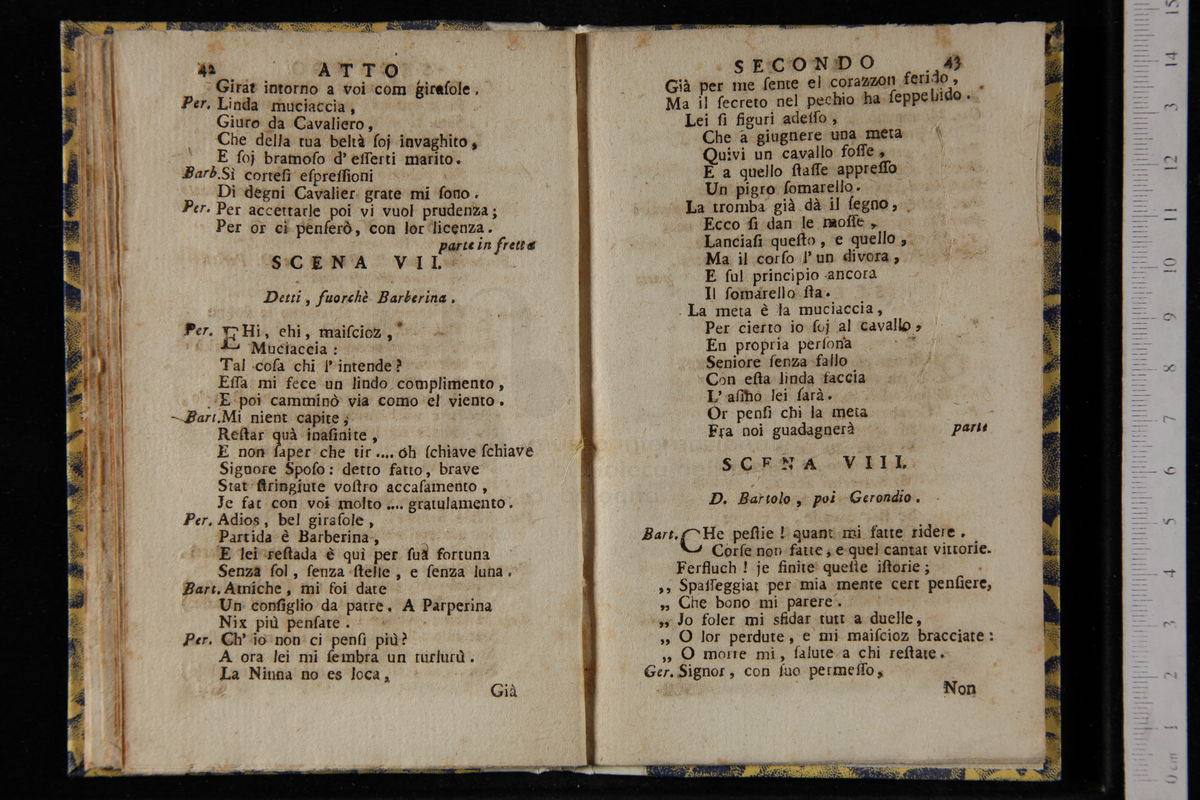 42 ATTO
Girat intorno a voi com giraſole.
Per. Linda muciaccia,
Giuro da Cavaliero,
Che della tua beltà ſoj invaghito,
E ſoj bramoſo d' eſſerti marito.
Barb. Sì corteſi eſpreſſioni
Di degni Cavalier grate mi ſono.
Per. Per accettarle poi vi vuol prudenza;
Per or ci penſerò, con lor licenza.
parte in fretta
SCENA VII.
Detti, fuorchè Barberina.
Per. EHi, ehi, maiſcioz,
Muciaccia:
Tal coſa chi l' intende?
Eſſa mi fece un lindo complimento,
E poi camminò via como el viento.
Bart. Mi nient capite,
Reſtar quà inaſinite,
E non ſaper che tir.... oh ſchiave ſchiave
Signore Spoſo: detto fatto, brave
Stat ſtringiute voſtro accaſamento,
Je fat con voi molto.... gratulamento.
Per. Adios, bel giraſole,
Partida è Barberina,
E lei reſtada è quì per ſuà fortuna
Senza ſol, ſenza ſtelle, e ſenza luna.
Bart. Amiche, mi foi date
Un conſiglio da patre. A Parperina
Nix più penſate.
Per. Ch' io non ci penſi più?
A ora lei mi ſembra un turlurù.
La Ninna no es loca,
Già
SECONDO 43
Già per me ſente el corazzon ferido,
Ma il ſecreto nel pechio ha ſeppelido.
Lei ſi figuri adeſſo,
Che a giugnere una meta
Quivi un cavallo foſſe,
E a quello ſtaſſe appreſſo
Un pigro ſomarello.
La tromba già dà il ſegno,
Ecco ſi dan le moſſe,
Lanciaſi queſto, e quello,
Ma il corſo l' un divora,
E ſul principio ancora
Il ſomarello ſta.
La meta è la muciaccia,
Per cierto io ſoj al cavallo,
En propria perſona
Seniore ſenza fallo
Con eſta linda faccia
L' aſino lei ſarà.
Or penſi chi la meta
Fra noi guadagnerà parte
SCENA VIII.
D. Bartolo, poi Gerondio.
Bart. CHe peſtie! quant mi fatte ridere.
Corſe non fatte, e quel cantat vittorie.
Ferfluch! je finite queſte iſtorie;
,, Spaſſeggiat per mia mente cert penſiere,
,, Che bono mi parere.
,, Jo foler mi sfidar tutt a duelle,
,, O lor perdute, e mi maiſcioz bracciate:
,, O morte mi, ſalute a chi reſtate.
Ger. Signor, con ſuo permeſſo,
Non